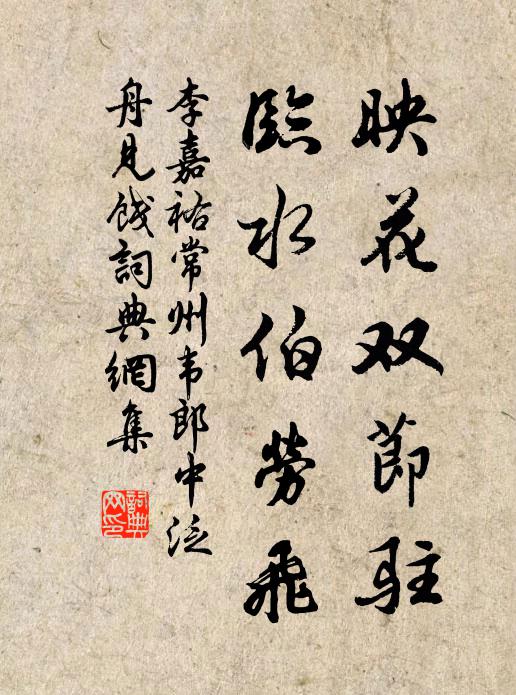 映花双節駐
臨水伯勞飛
李嘉祐常州韦郎中泛
舟見餞詞典網集
詞典网印